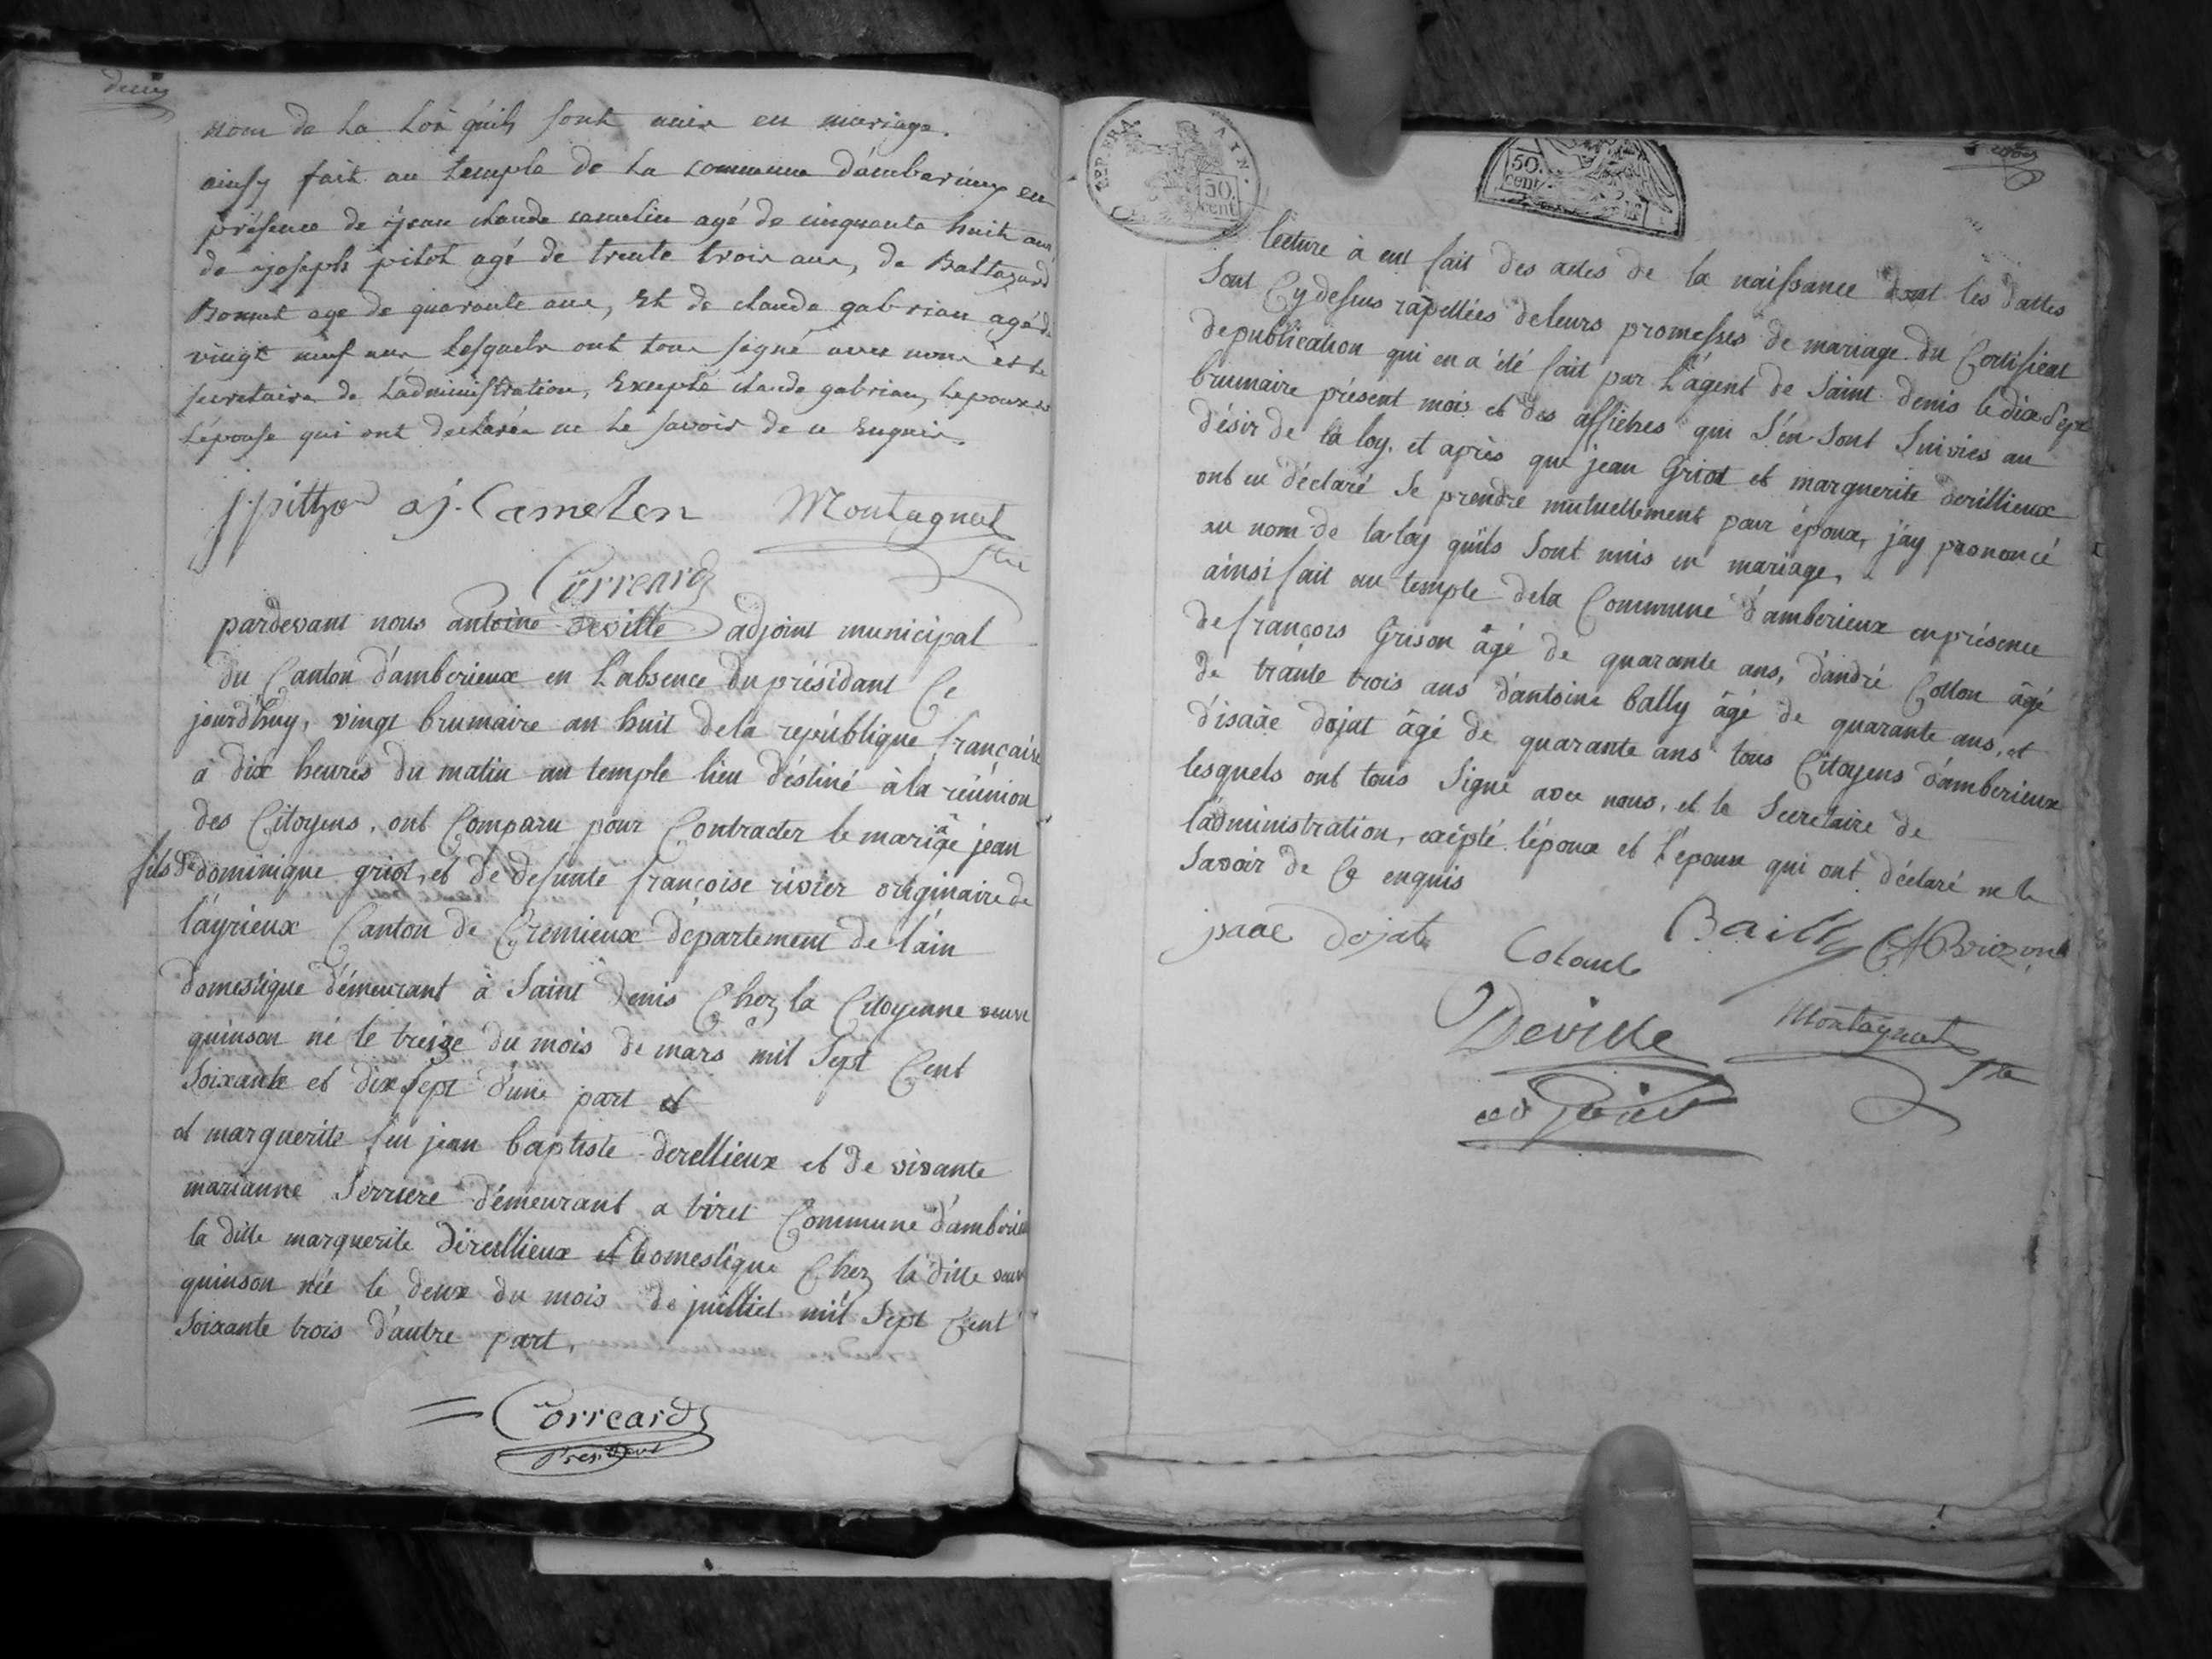 deux
nom de la Loi qu'ils sont unis en mariage.
ainsy fait au temple de la commune d'amberieux en
présence de jean claude camelin agé de cinquante huit ans
de joseph pitot agé de trente trois ans, de Baltazard
Bonnet age de quarante ans, Et de claude gabrian agé de
vingt neuf ans Lesquels ont tous signé avec nous et le
secretaire de L'administration, Excepté claude gabrian, L'epoux et
L'épouse qui ont declarée ne Le savoir de ce Enquis.
J. pithod a j. Camelen Montagnat
Correard
pardevant nous antoine deville adjoint municipal
du Canton d'amberieux en l'absence du présidant Ce
jourd'huy, vingt brumaire an huit de la république française
à dix heures du matin au temple lieu déstiné à la réunion
des Citoyens, ont Comparu pour Contracter le mariage jean
fils de dominique griot, et de defunte françoise rivier originaire de
l'ayrieux Canton de Cremieux département de l'ain
domestique démeurant à Saint denis Chez la Citoyenne veuve
quinson né le treize du mois de mars mil Sept Cent
Soixante et dix Sept d'une part et
et marguerite feu jean baptiste derellieux et de vivante
marianne Serriere démeurant a tiret Commune d'amberieu
la ditte marguerite direllieux domestique Chez la ditte veuve
quinson née le deux du mois de juilliet mil Sept Cent
Soixante trois d'autre part,
= Correard
President
REP. FRA
AIN.
50.
cent
50.
cent
lecture à eux fait des actes de la naissance dont les dattes
Sont Cy dessus rapellées de leurs promesses de mariage du Certificat
de publication qui en a été fait par L'agent de Saint denis le dix Sept
brumaire présent mois et des affiches qui S'en Sont Suivies au
désir de la loy, et après que jean Griot et marguerite derillieux
ont eu déclaré Se prendre mutuellement pour époux, j'ay prononcé
au nom de la loy qu'ils Sont unis en mariage,
ainsi fait au temple de la Commune d'amberieux en présence
de françois Grison âgé de quarante ans, d'andré Cotton âgé
de trante trois ans d'antoine bally âgé de quarante ans, et
d'isaäc dojat âgé de quarante ans tous Citoyens d'amberieux
lesquels ont tous Signé avec nous, et le Secretaire de
l'administration, exèpté l'époux et l'epoux qui ont déclaré ne le
Savoir de Ce enquis
jsaac dojat Bailly
Cotant
Devile Montagnat